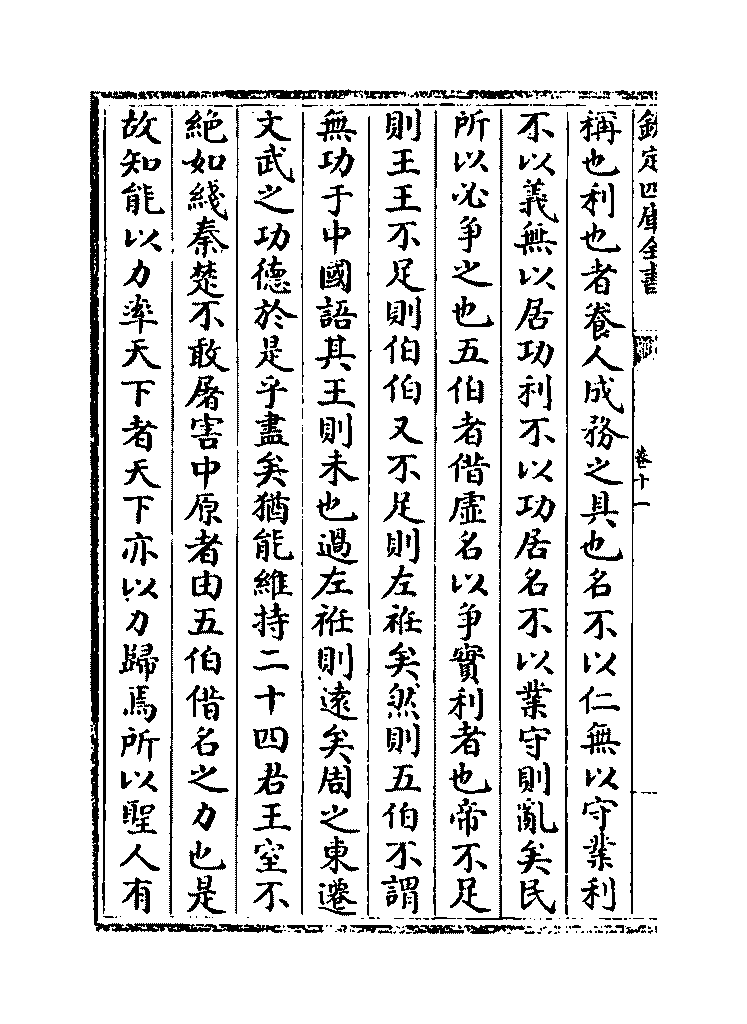 欽定四庫全書
卷十一
稱也利也者養人成務之具也名不以仁無以守業利
不以義無以居功利不以功居名不以業守則亂矣民
所以必爭之也五伯者借虛名以爭實利者也帝不足
則王王不足則伯伯又不足則左袵矣然則五伯不謂
無功于中國語其王則未也過左袵則遠矣周之東遷
文武之功德於是乎盡矣猶能維持二十四君王室不
絕如綫秦楚不敢屠害中原者由五伯借名之力也是
故知能以力率天下者天下亦以力歸焉所以聖人有